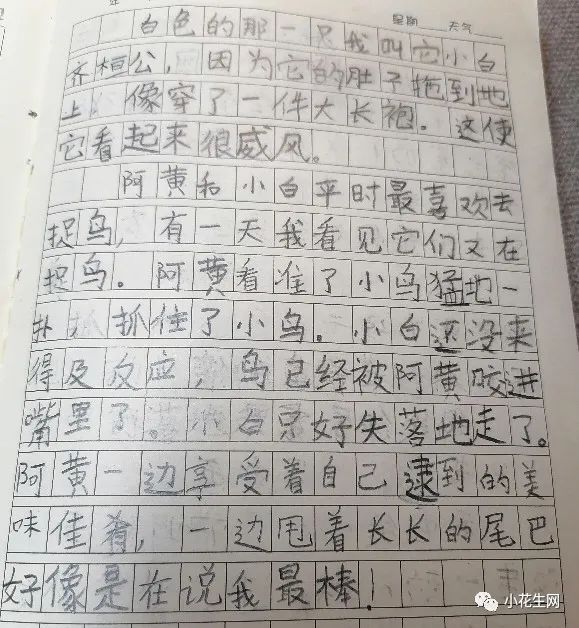 星期 天气
白色的那一只我叫它小白
齐桓公，因为它的肚子拖到地
上 像穿了一件大长袍。这使
它看起来很威风。
阿黄和小白平时最喜欢去
捉鸟，有一天我看见它们又在
捉鸟。阿黄看准了小鸟猛地一
扑 抓住了小鸟。小白还没来
得及反应，鸟已经被阿黄咬进
嘴里了。小白只好失落地走了。
阿黄一边享受着自己逮到的美
味佳肴，一边甩着长长的尾巴
好像是在说我最棒！
小花生网